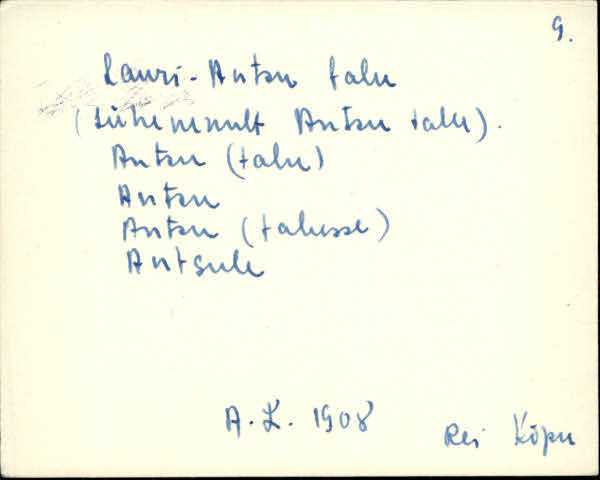 9.
Lauri-Antsu talu
(lühemalt Antsu talu).
Antsu (talu)
Antsu
Antsu (talusse)
Antsule
A. L. 1908
Rei Kõpu